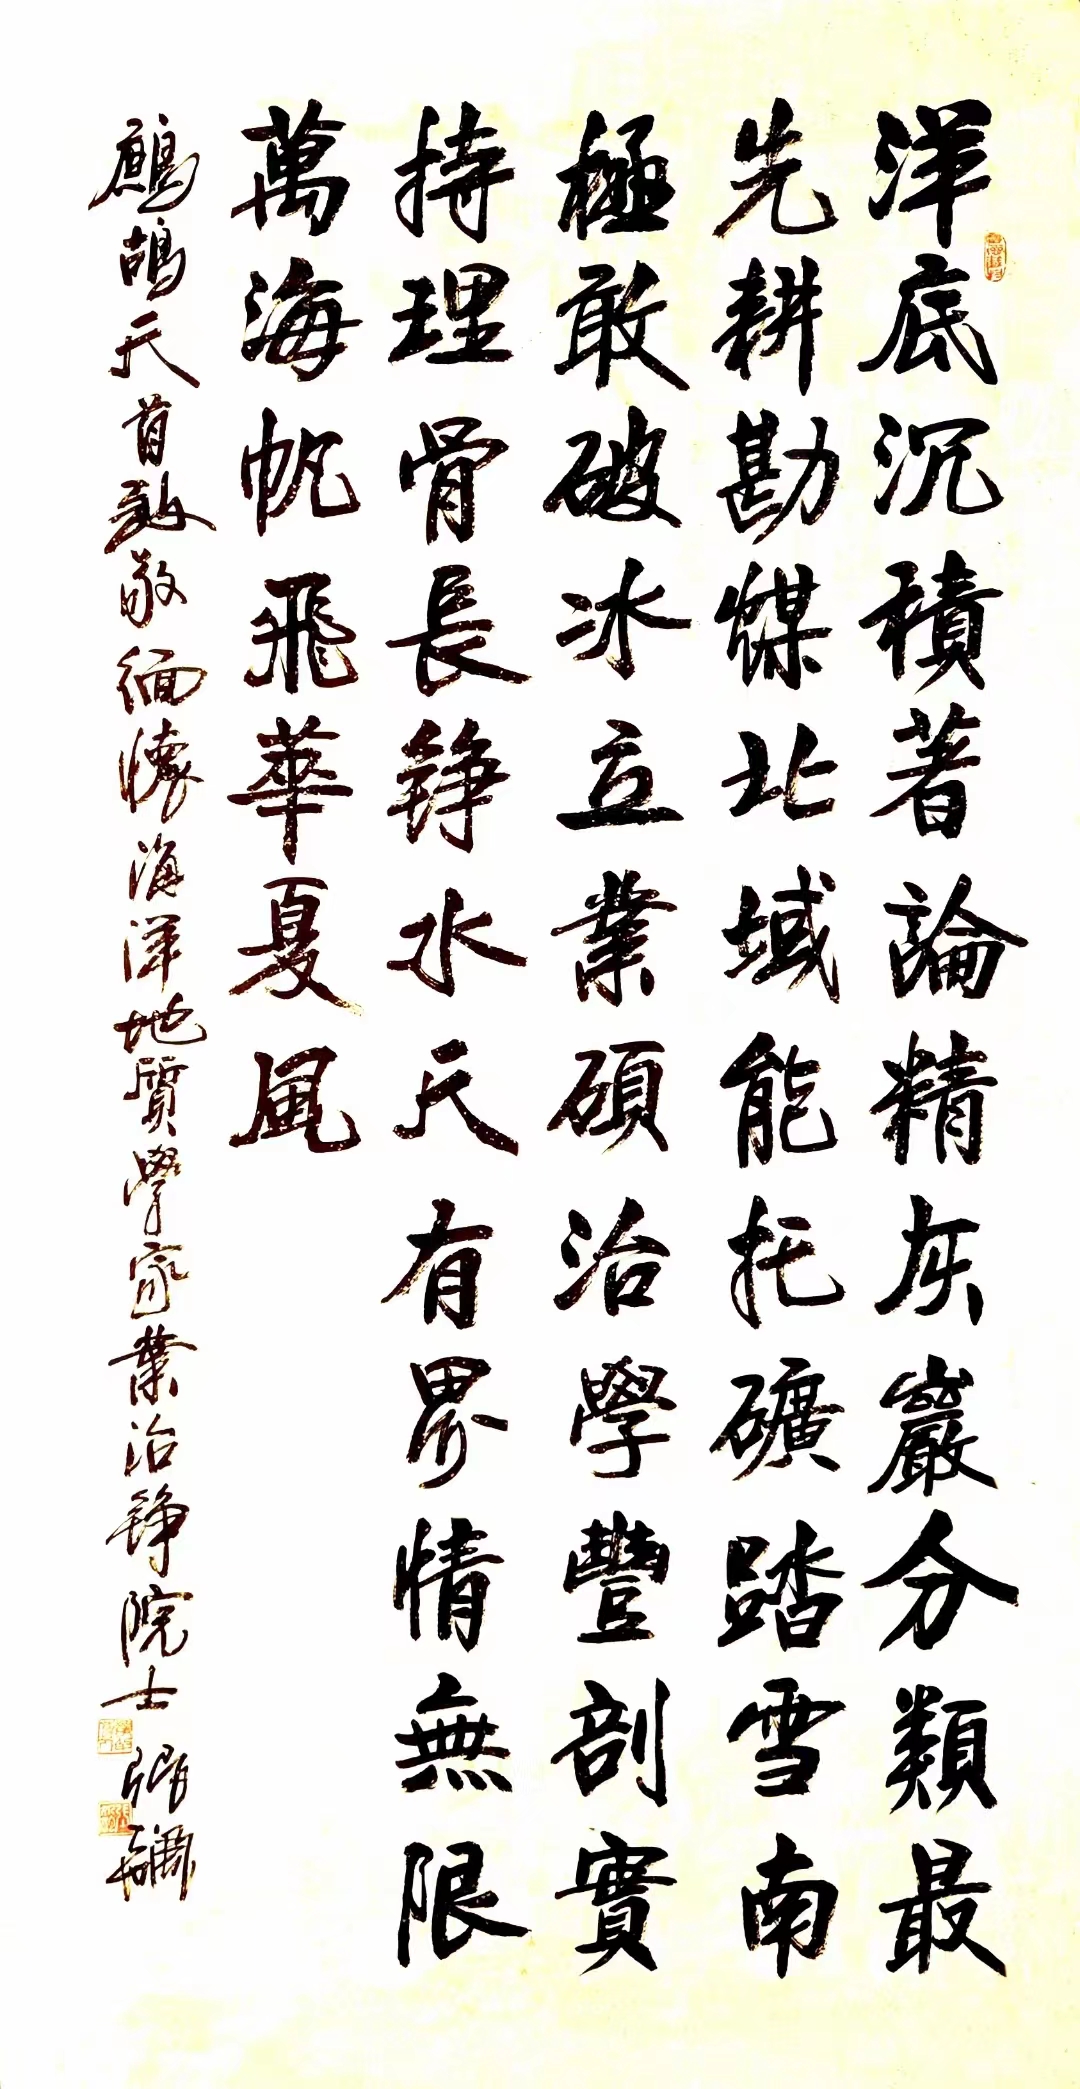 洋底沉積著論精灰巖分類最
先耕勘煤北域能托礦踏雪南
極敢破冰立業碩治學豐剖實
持理骨長铮水天有界情無限
萬海帆飛華夏風
鷓鴣天首致敬緬懷海洋地質學家業治铮院士